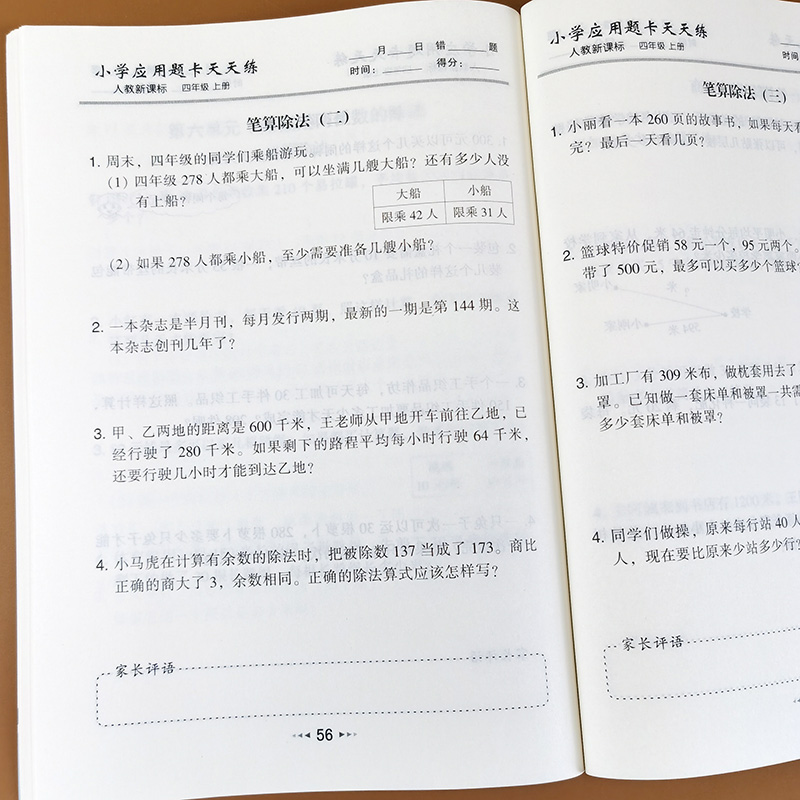 小学应用题卡天天练
人教新课标 四年级 上册
____月____日 错____题
时间：______ 得分：____
笔算除法（二）
1. 周末，四年级的同学们乘船游玩。
（1）四年级 278 人都乘大船，可以坐满几艘大船？还有多少人没
有上船？
大船 小船
限乘 42 人 限乘 31 人
（2）如果 278 人都乘小船，至少需要准备几艘小船？
2. 一本杂志是半月刊，每月发行两期，最新的一期是第 144 期。这
本杂志创刊几年了？
3. 甲、乙两地的距离是 600 千米，王老师从甲地开车前往乙地，已
经行驶了 280 千米。如果剩下的路程平均每小时行驶 64 千米，
还要行驶几小时才能到达乙地？
4. 小马虎在计算有余数的除法时，把被除数 137 当成了 173。商比
正确的商大了 3，余数相同。正确的除法算式应该怎样写？
家长评语
56
小学应用题卡天天练
人教新课标 四年级 上册
时间：
笔算除法（三）
1. 小丽看一本 260 页的故事书，如果每天看
完？最后一天看几页？
2. 篮球特价促销 58 元一个，95 元两个。
带了 500 元，最多可以买多少个篮球
3. 加工厂有 309 米布，做枕套用去了
罩。已知做一套床单和被罩一共需
多少套床单和被罩？
4. 同学们做操，原来每行站 40 人
人，现在要比原来少站多少行？
家长评语